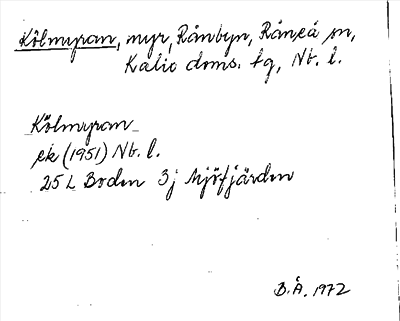 Kölmyran, myr, Rånbyn, Råneå sn,
Kalix doms. tg, Nb. l.
Kölmyran
ek (1951) Nb. l.
25 L Boden 3j Mjöfjärden
B.Å. 1972